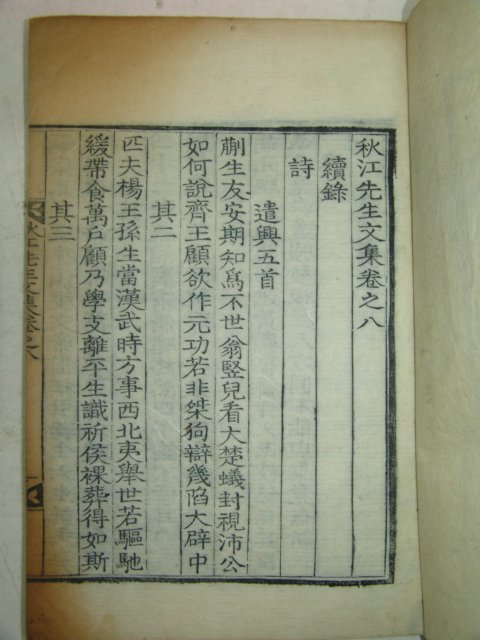 秋江先生文集卷之八
續錄
詩
遣興五首
蒯生友安期知爲不世翁竪兒看大楚蟻封視沛公
如何說齊王顧欲作元功若非桀狗辯幾陷大辟中
其二
匹夫楊王孫生當漢武時方事西北夷擧世若驅馳
緩帶食萬戶顧乃學支離平生識祈侯裸葬得如斯
其三
秋江先生文集卷之八